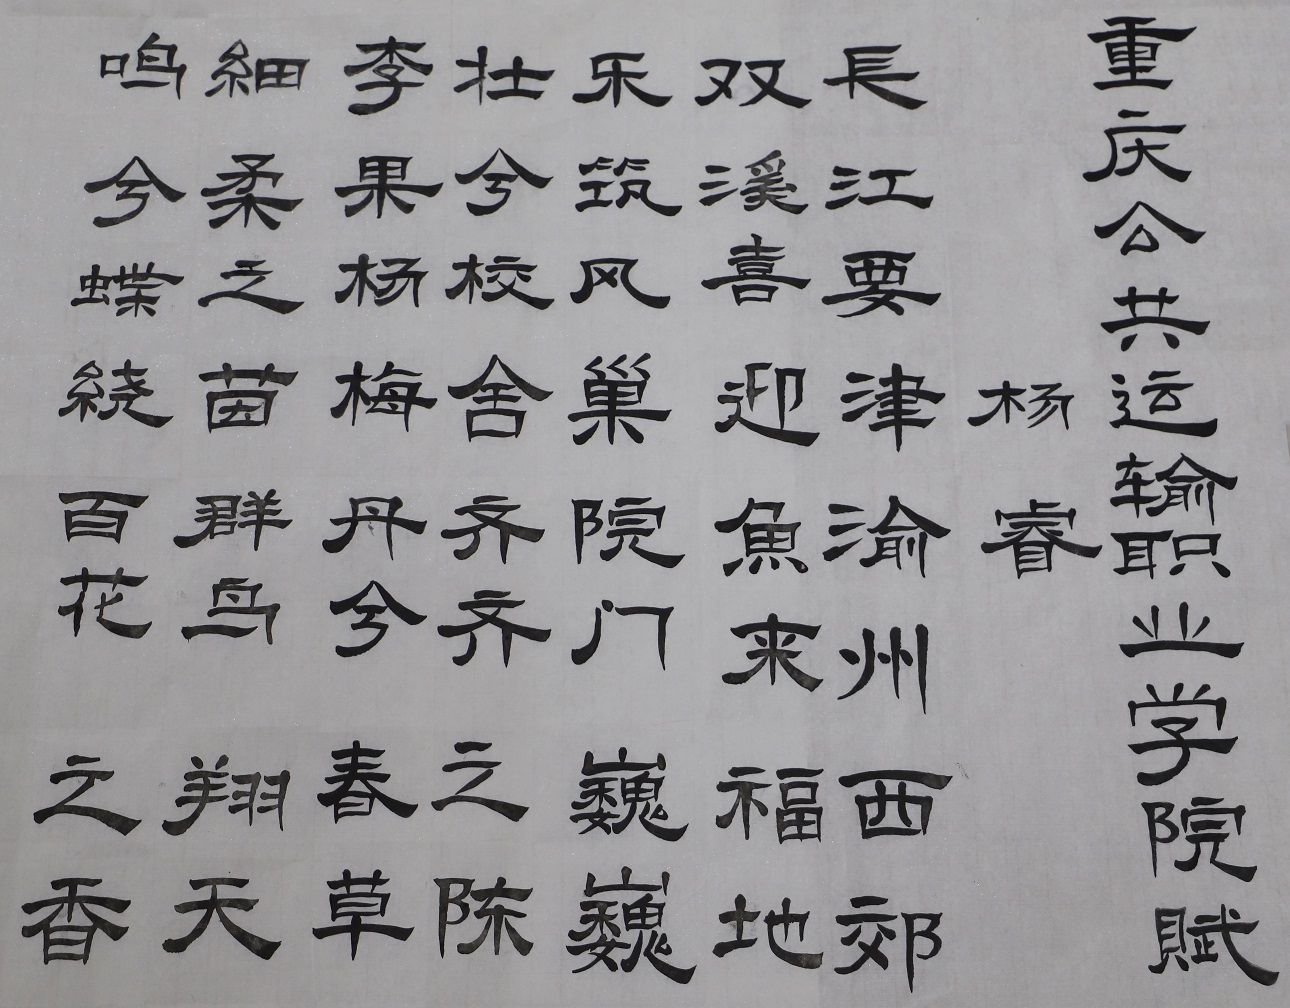 重庆公共运输职业学院赋
杨睿
長江要津渝州西郊
双溪喜迎魚来福地
乐筑风巢院门巍巍
壮兮校舍齐齐之陈
李果杨梅丹兮春草
細柔之茵群鸟翔天
鸣兮蝶繞百花之香